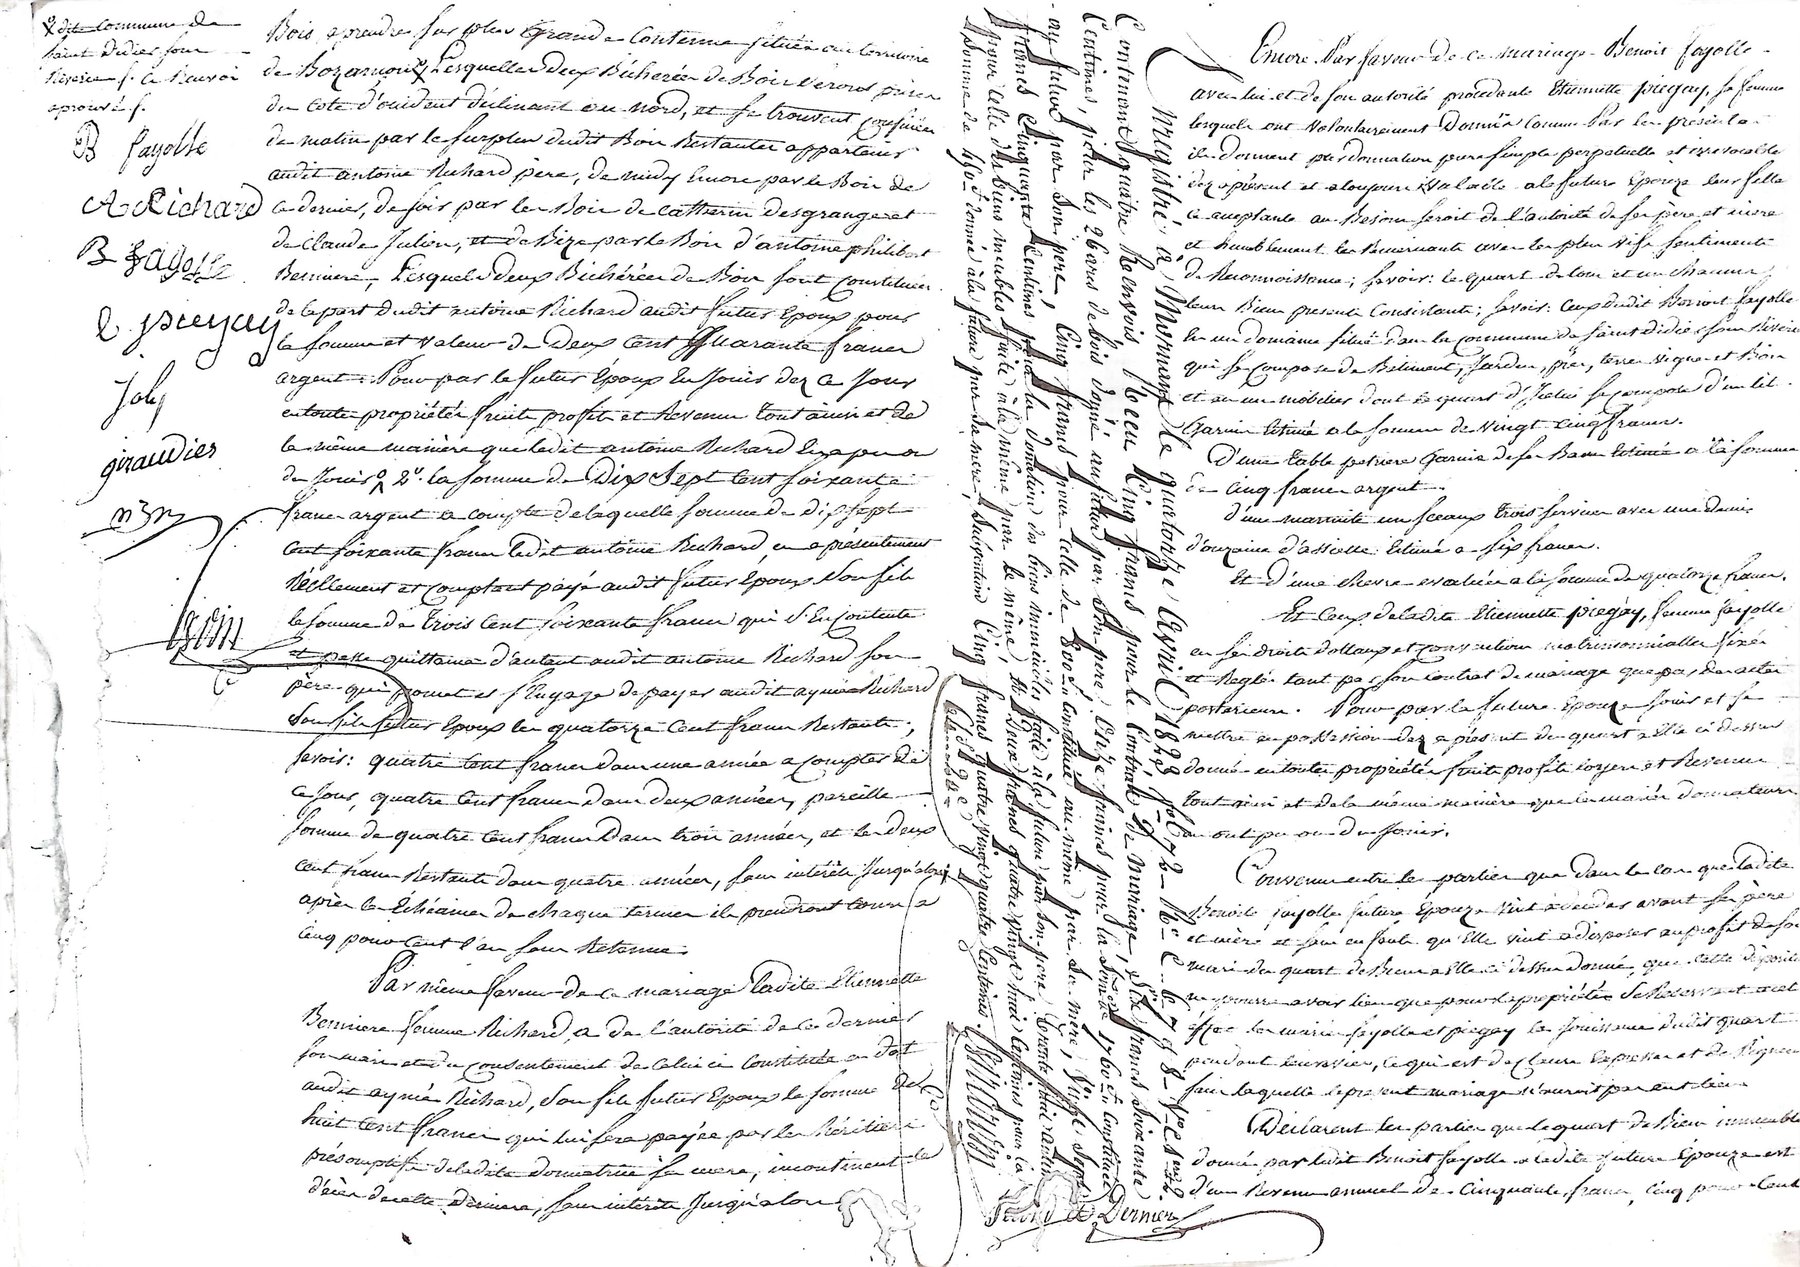 dite commune de
Saint Didier sous
Riverie /. Ce Renvoi
aprouvé /.
B fayolle
A Richard
B fayolle
E piegay
Joly
giraudier
Bois a prendre sur plus Grande Contenue située au territoire
de Bozamon, Lesquelles deux Bicherées de Bois seront prises
du coté d'occident déclinant au nord, et se trouvent confinées
de matin par le surplus dudit Bois Restantes appartenir
audit antoine Richard père, de midy Encore par le Bois de
ce dernier, de soir par les Bois de catherin desgranges et
de Claude Julien, et de Bize par le Bois d'antoine philibert
Berniere, Lesquels deux Bicherées de Bois sont Constituées
de la part dudit antoine Richard audit futur Epoux pour
la somme et valeur de Deux Cent Quarante francs
argent. Pour par le futur Epoux En Jouir dez ce Jour
en toutes propriétés fruits profits et Revenus tout ainsi et de
la même manière que ledit antoine Richard En a pu ou
du Jouir 2°. la somme de Dix Sept Cent Soixante
francs argent a compte de laquelle somme de dix sept
cent soixante francs ledit antoine Richard en a présentement
Réellement et comptant payé audit futur Epoux son fils
la somme de trois Cent soixante francs qui s'En contente
et passe quittance d'autant audit antoine Richard son
père qui promet et s'Engage de payer audit aymé Richard
son fils futur Epoux les quatorze Cent francs Restants,
savoir: quatre Cent francs dans une année a compter de
ce Jour, quatre Cent francs dans deux années, pareille
somme de quatre Cent francs dans trois années, et les deux
cent francs Restants dans quatre années, sans intérêts Jusqu'alors
après les Echéances de chaque termes ils prendront cours a
Cinq pour Cent l'an sans Retenue.
Par même faveur de ce mariage Ladite Etiennette
Berniere femme Richard, a de l'autorité de ce dernier
son mari et du consentement de celui ci constituée en dot
audit aymé Richard, son fils futur Epoux la somme de
huit Cent francs qui lui sera payée par les héritiers
présomptifs de ladite donnatrice sa mere, incontinent le
décès de cette dernière, sans intérêts Jusqu'alors
Enregistré à Mornant le quatorze Avril 1828 f° 72 R° C. 6 7 et 8 V° C 1ere et 2
Contenant quatre Renvois Reçu Cinq francs pour le Contrat de mariage, Six francs Soixante
Centimes, pour les 2 bars de bois donné au futur par son pere, Onze francs pour la somme de 1760 f Constituée
au futur par son pere, Cinq francs pour celle de 800 f Constitué au même par sa mère, Vingt Sept
francs Cinquante Centimes pour la donation des biens immeubles faite à la future par son pere, trente huit Centimes
pour celle des biens meubles faite à la même par le même, Deux francs quatre vingt huit Centimes pour la
Somme de 460 f donné à la future par sa mere, Subvention Cinq francs quatre vingt quatre Centimes.
Second & Dernier
Encore Par faveur de ce mariage Benoit fayolle
avec lui et de son autorité procedante Etiennette piegay, sa femme
lesquels ont volontairement Donnés comme Par les présentes
ils donnent par donnation pure simple perpetuelle et irrevocable
dez a présent et a toujours valable a la future Epouze leur fille
ce acceptante au Besoin seroit de l'autorité de ses père et mere
et humblement les Remerciante avec les plus vifs sentiments
de Reconnoissance, savoir: le quart de tous et un chacuns
leurs Biens presents Consistants; savoir: Ceux dudit Benoit fayolle
En un domaine situé dans la commune de saint didier sous Riverie
qui se compose de Batiments, Jardin, pré, terre vigne et Bois
et en un mobilier dont le quart d'Icelui se compose d'un lit
Garni Estimé a la somme de vingt cinq francs.
D'une table petriere Garnie de ses Bancs Estimée a la somme
de Cinq francs argent.
d'une marmite un sceaux trois servietes avec une demie
d'ouzaine d'assiettes Estimé a six francs.
Et d'une chevre evaluée a la somme de quatorze francs.
Et Ceux de ladite Etiennette piegay, femme fayolle
en ses droits dottaux et convention matrimonialles fixés
et Reglés tant par son contrat de mariage que par des actes
posterieurs. Pour par la future Epouze Jouir et se
mettre en possession dez a présent du quart a Elle ci dessus
donné en toutes propriétés fruits profits loyers et Revenus
tout ainsi et de la même manière que les mariés donnateurs
en ont pu ou du Jouir.
Convenu entre les parties que dans le cas que ladite
Benoite fayolle future Epouze vint a deceder avant ses père
et mère et sans enfants qu'Elle vint a disposer au profit de son
mari du quart des Biens a Elle ci dessus donné, que cette disposition
ne pourra avoir lieu que pour la propriétés se Reservent a cet
effet les mariés fayolle et piegay la Jouissance dudit quart
pendant leurs vies, ce qui est de Clause Expresse et de Rigueur
sans laquelle le present mariage n'auroit pas eut lieu
Déclarent les parties que le quart des Biens immeubles
donné par ledit Benoit fayolle a ladite future Epouze est
d'un Revenu annuel de Cinquante francs, cinq pour Cent